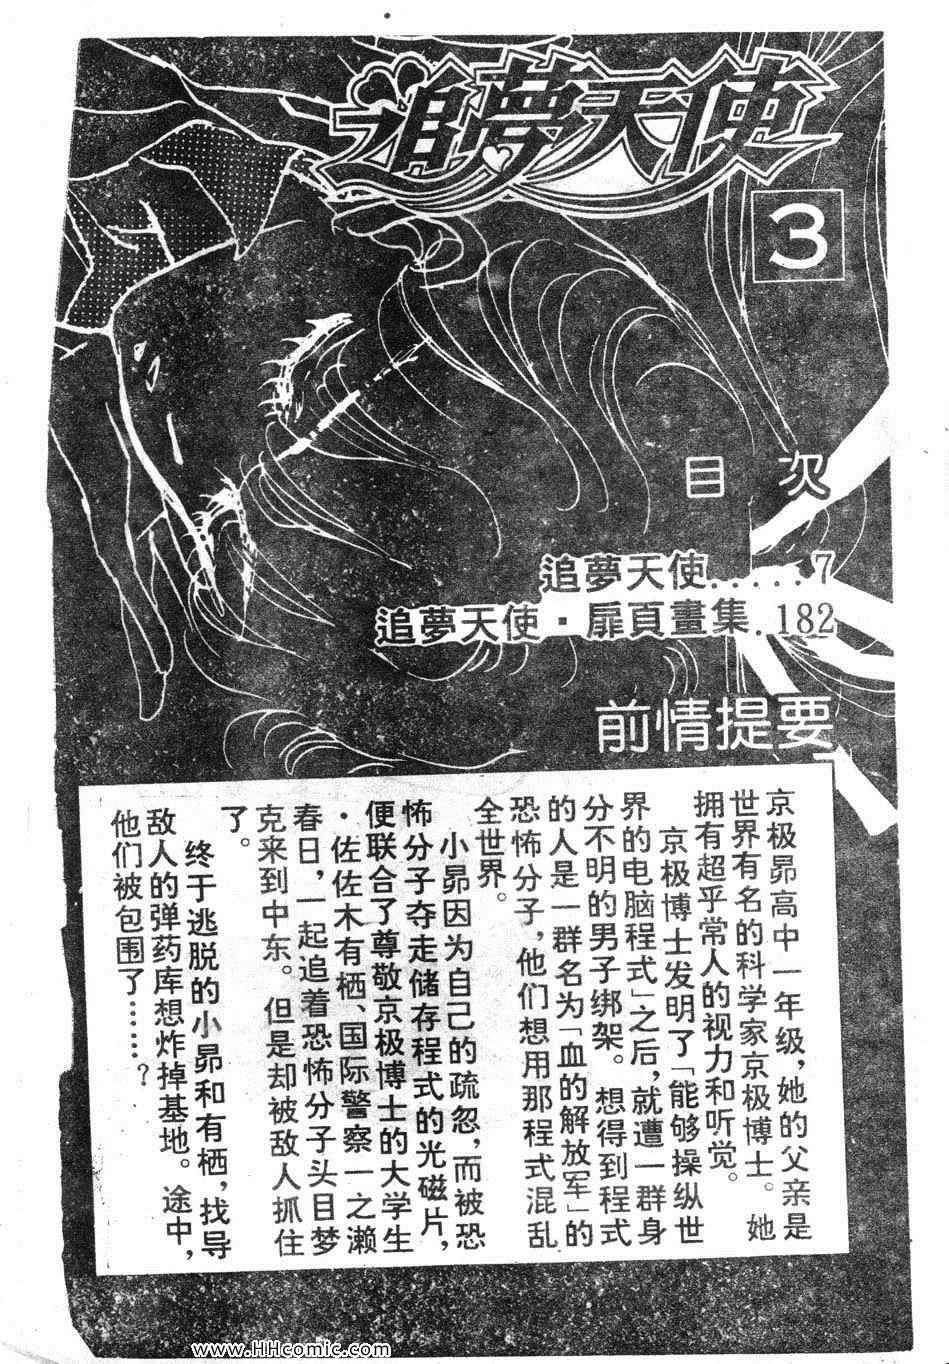 追夢天使
3
目 次
追夢天使......7
追夢天使·扉頁畫集.182
前情提要
京极昴高中一年级,她的父亲是
世界有名的科学家京极博士。她
拥有超乎常人的视力和听觉。
京极博士发明了「能够操纵世
界的电脑程式」之后,就遭一群身
分不明的男子绑架。想得到程式
的人是一群名为「血的解放军」的
恐怖分子,他们想用那程式混乱
全世界。
小昴因为自己的疏忽,而被恐
怖分子夺走储存程式的光磁片,
便联合了尊敬京极博士的大学生
·佐佐木有栖、国际警察一之濑
春日,一起追着恐怖分子头目梦
克来到中东。但是却被敌人抓住
了。
终于逃脱的小昴和有栖,找导
敌人的弹药库想炸掉基地。途中,
他们被包围了……?
www.HHcomic.com